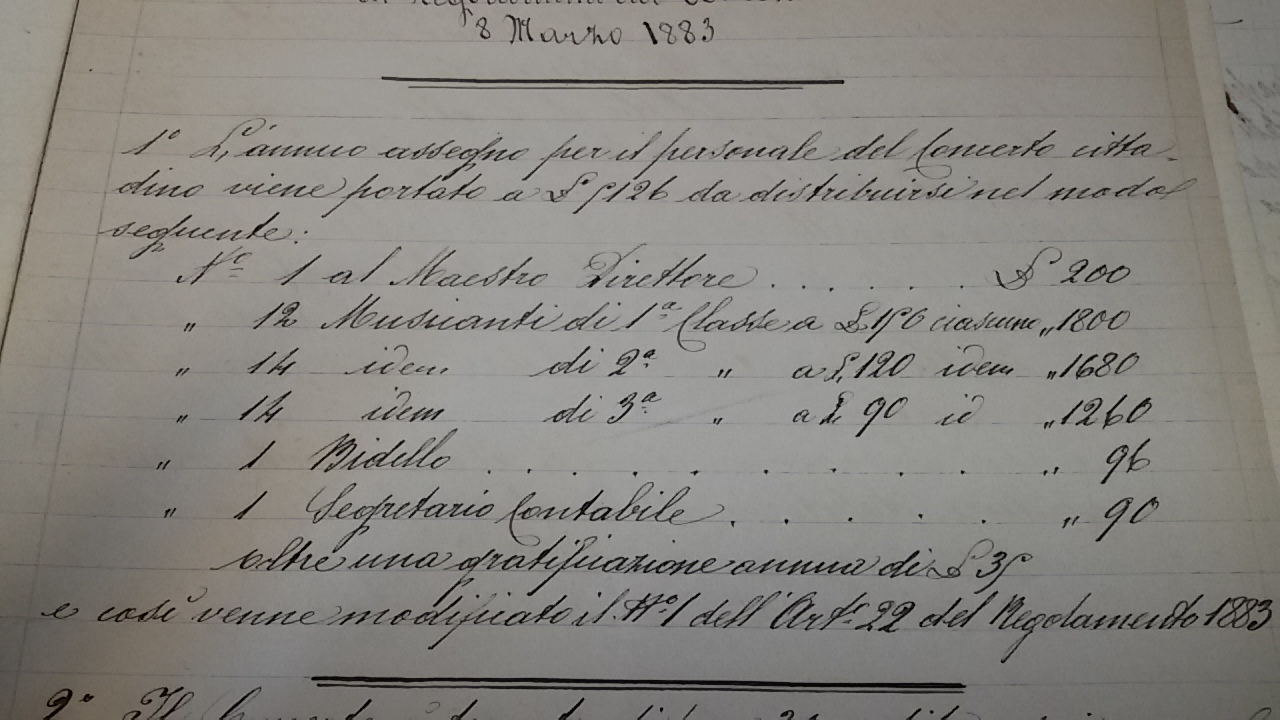 8 Marzo 1883
1° L'annuo assegno per il personale del Concerto citta-
dino viene portato a £ 5126 da distribuirsi nel modo
seguente:
N° 1 al Maestro Direttore . . . . . . £ 200
„ 12 Musicanti di 1ª Classe a £ 150 ciascuno „ 1800
„ 14 idem di 2ª „ a £ 120 idem „ 1680
„ 14 idem di 3ª „ a £ 90 id „ 1260
„ 1 Bidello . . . . . . . . „ 96
„ 1 Segretario Contabile . . . . „ 90
oltre una gratificazione annua di £ 35
e così venne modificato il N° 1 dell'Art. 22 del Regolamento 1883
2° Il